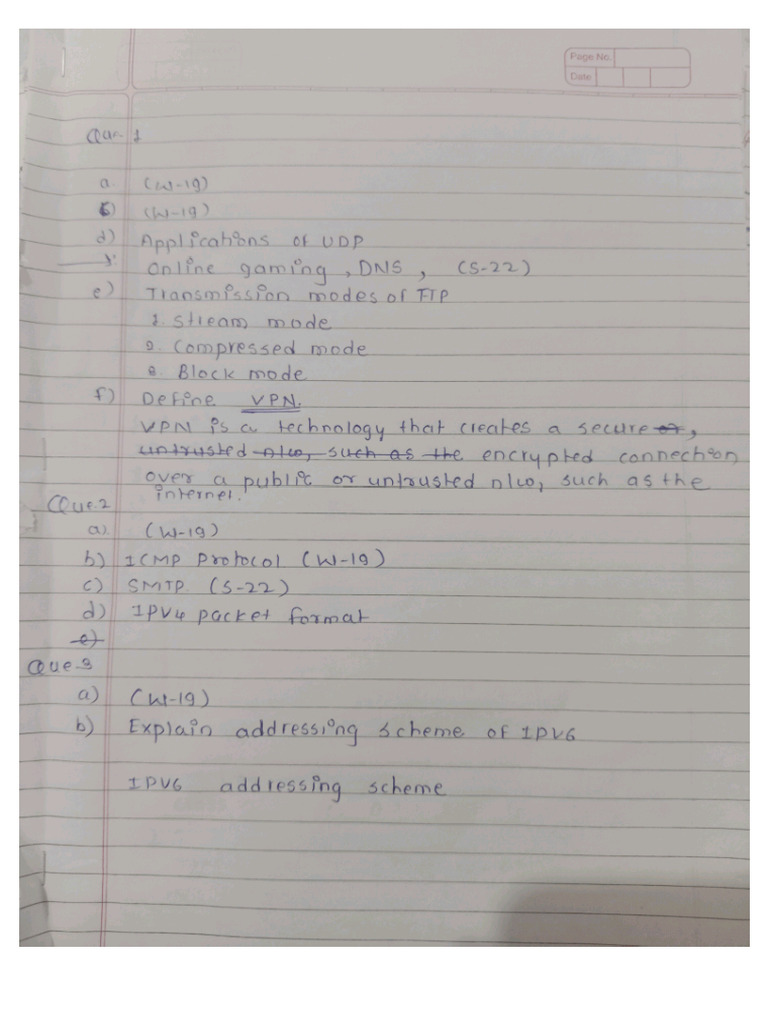 Page No.
Date
Que. 1
a. (W-19)
b) (W-19)
d) Applications of UDP
Online gaming, DNS, (S-22)
e) Transmission modes of FTP
1. Stream mode
2. Compressed mode
3. Block mode
f) Define VPN.
VPN is a technology that creates a secure or,
untrusted n/w, such as the encrypted connection
over a public or untrusted n/w, such as the
internet.
Que.2
a). (W-19)
b) ICMP Protocol (W-19)
c) SMTP. (S-22)
d) IPV4 packet format
e)
Que.3
a) (W-19)
b) Explain addressing scheme of IPV6
IPV6 addressing scheme